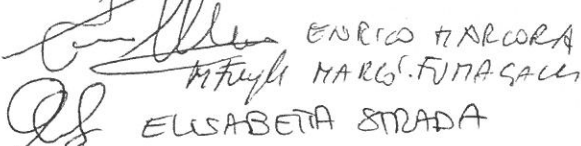 ENRICO MARCORA
MARCO FUMAGALLI
ELISABETTA STRADA